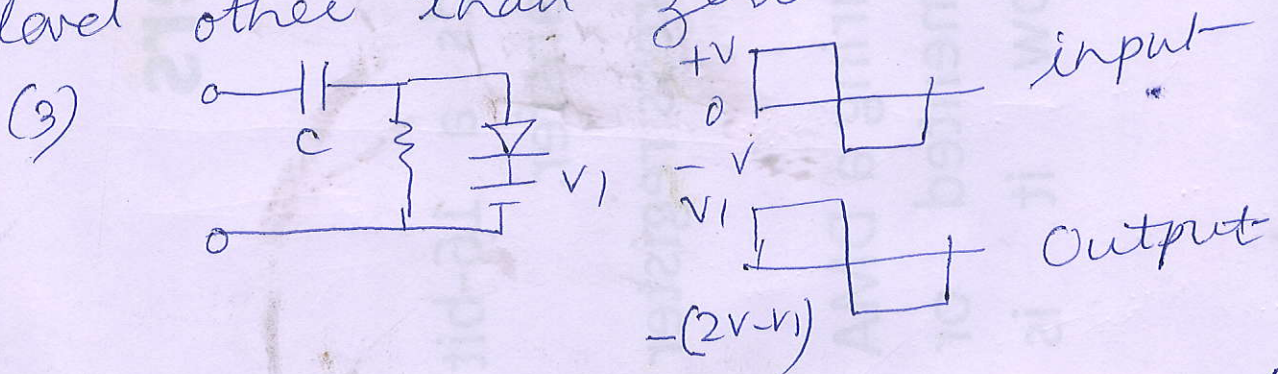 level other than
(3)
C
V1
+V
0
-V
input
V1
-(2V-V1)
Output